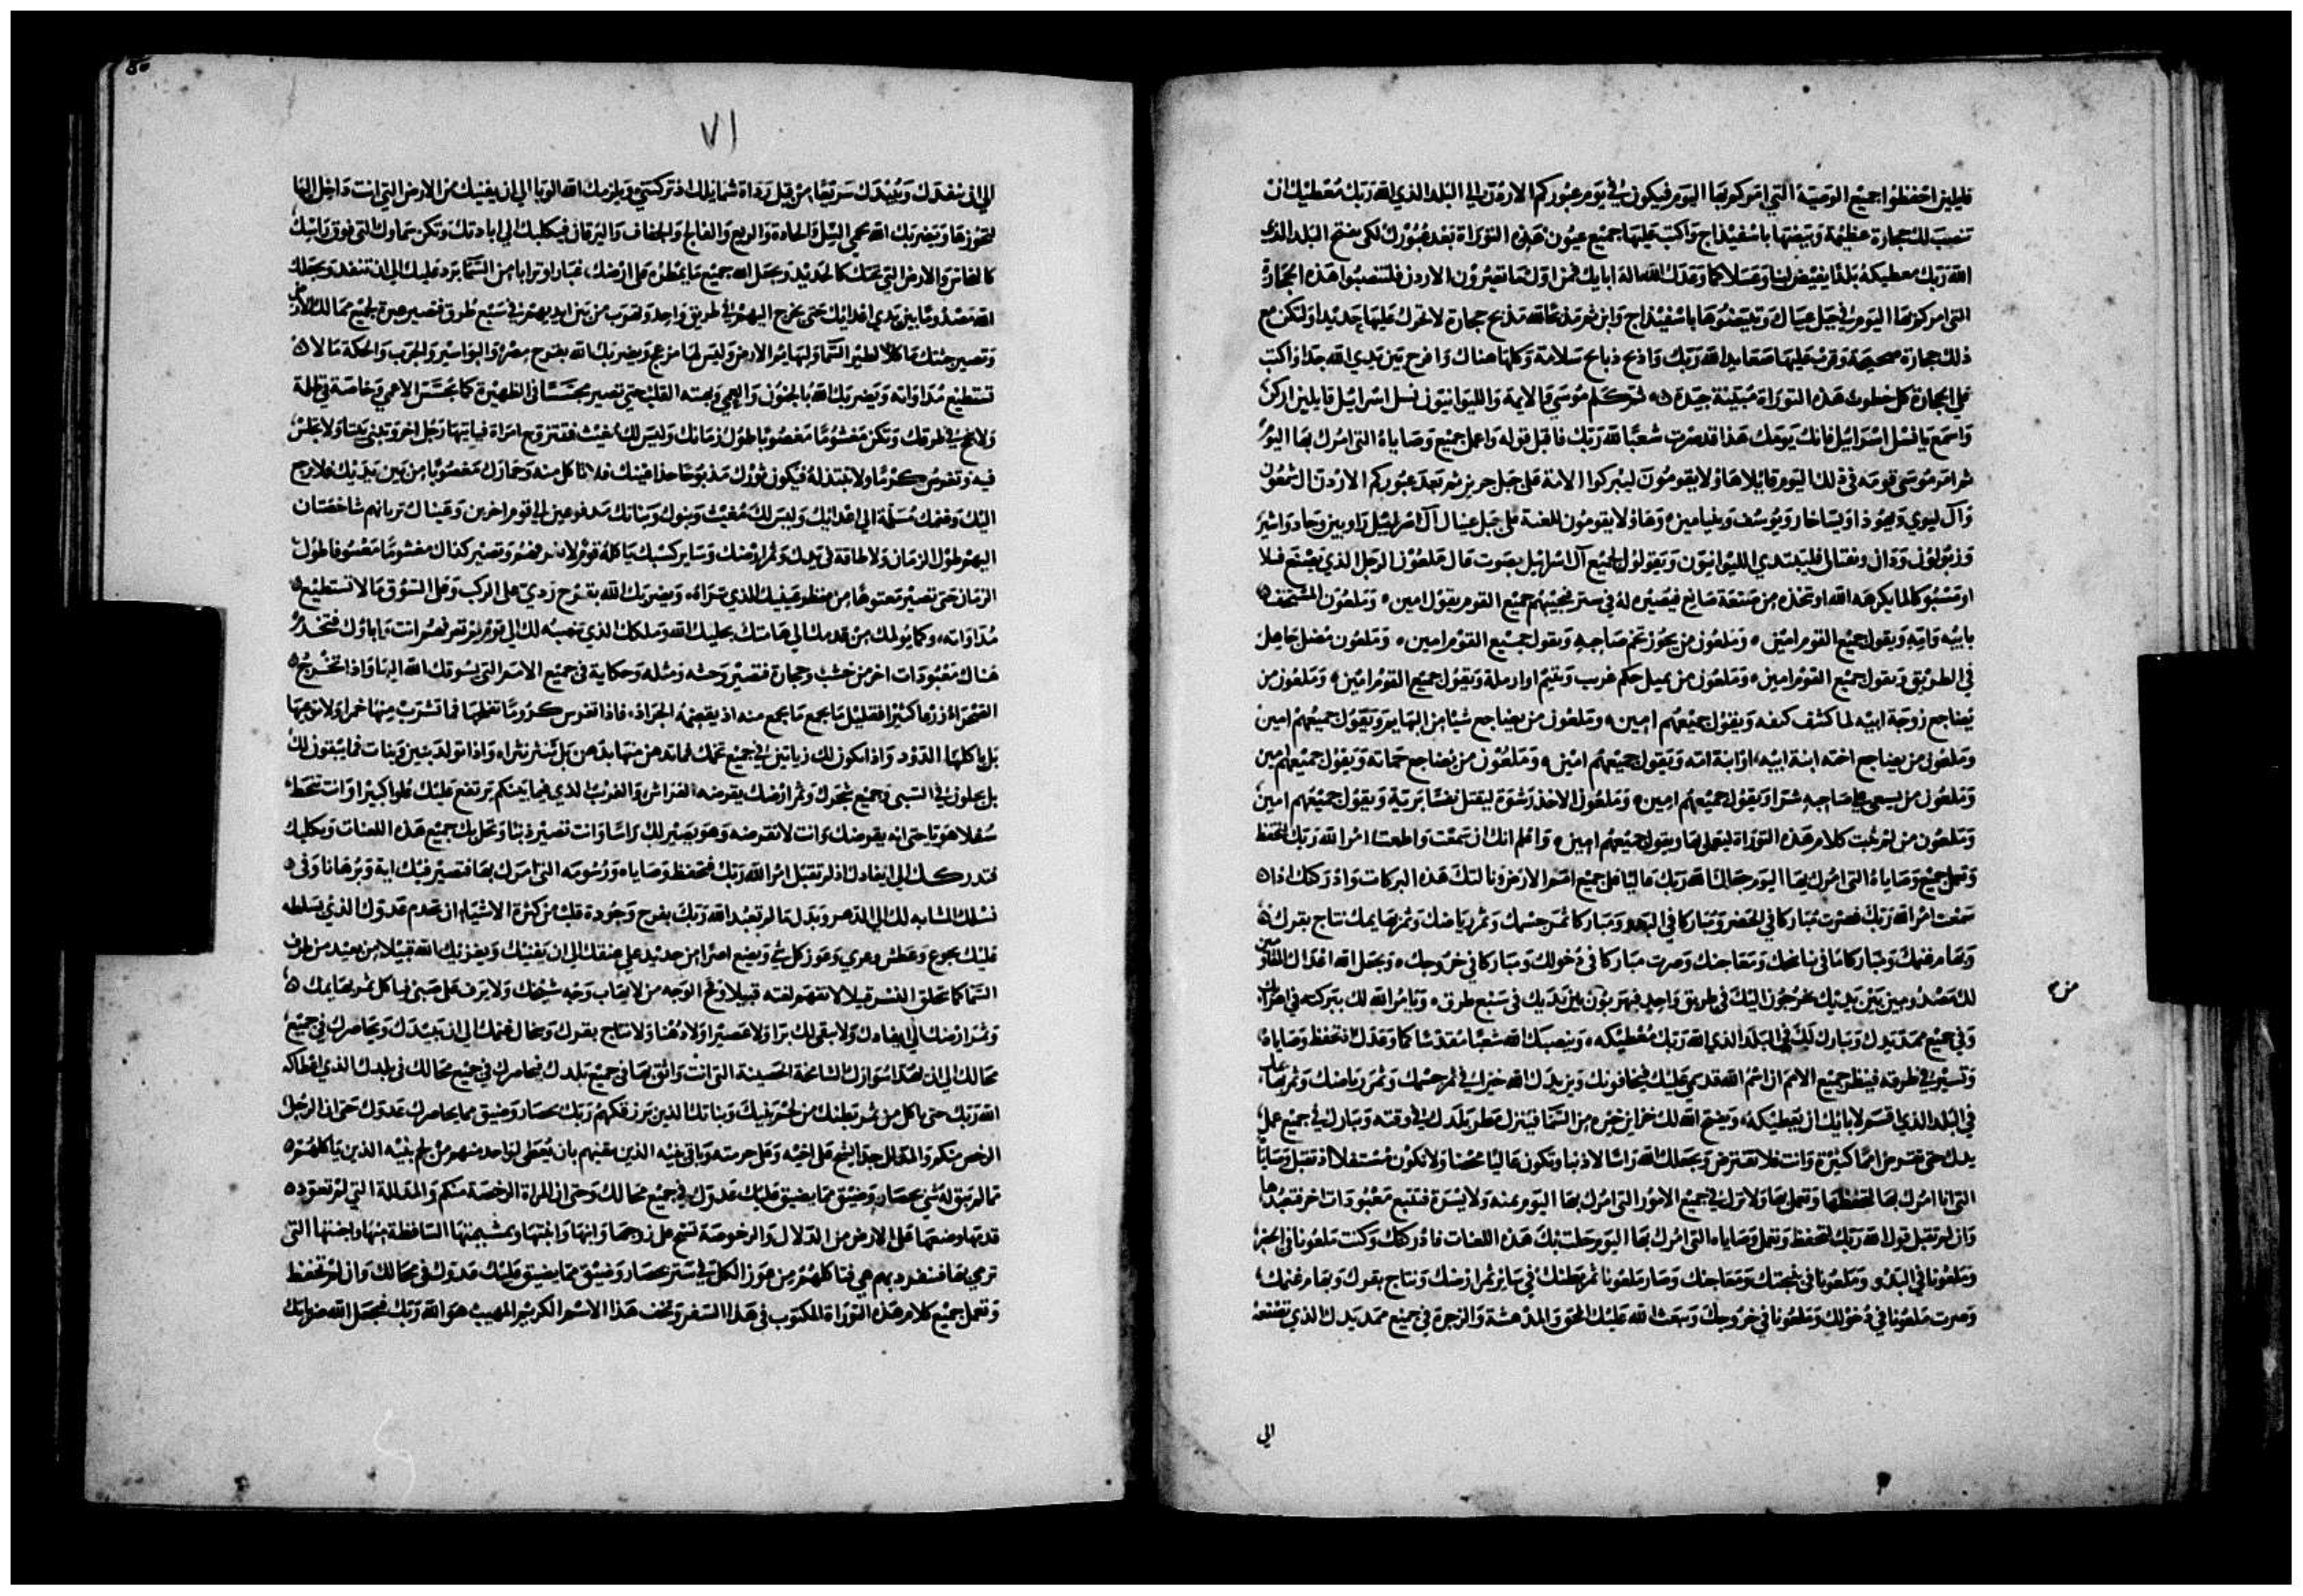 قايلين احفظوا جميع الوصية التي امركم بها اليوم فيكون في يوم عبوركم الاردن الي البلد الذي الله ربك معطيك ان
تنصب لك حجارة عظيمة وتبيضها باسفيذاج واكتب عليها جميع عيون هذه التوراة بعد عبورك لكي يفتح البلد الذي
الله ربك معطيكه بلدا يفيض لبنا وعسلا كما وعدك الله اله ابايك فمن اول ما تعبرون الاردن فلتنصبوا هذه الحجارة
التي امركم بها اليوم في جبل عيبال وتبيضوها باسفيذاج وابن ثم مذبحا لله مذبح حجارة لا تحرك عليها حديدا ولتكن مع
ذلك حجارة صحيحة وقرب عليها صعايد لله ربك واذبح ذبايح سلامة وكلها هناك وافرح بين يدي الله جدا واكتب
علي الحجارة كل خطوب هذه التوراة مبينة جيدة ثم كلم موسي والايمة والليوانيون نسل اسراييل قايلين اركن
واسمع يا نسل اسراييل فانك يومك هذا قد صرت شعبا لله ربك فاقبل قوله واعمل جميع وصاياه التي امرك بها اليوم
ثم امر موسي قومه في ذلك اليوم قايلا هاولا يقومون ليبركوا الامة علي جبل جريزيم بعد عبوركم الاردن ال شمعون
وآل ليوي ويهوذا ويساخار ويوسف وبنيامين وهاولا يقومون للعنة علي جبل عيبال آل راوبين وجاد واشير
وزبولون ودان ونفتالي فليبتدي الليوانيون ويقولون لجميع آل اسراييل بصوت عال ملعون الرجل الذي يصنع فسلا
او مسبوكا لما يكرهه الله او تخذه من صنعة صانع فيصيره له في ستر فيجيبهم جميع القوم بقول امين وملعون المستخف
بابيه وامه ويقول جميع القوم امين وملعون من يحوز تخم صاحبه ويقول جميع القوم امين وملعون مضل جاهل
في الطريق ويقول جميع القوم امين وملعون من يميل حكم غريب ويتيم او ارملة ويقول جميع القوم امين وملعون من
يضاجع زوجة ابيه لما كشف كنفه ويقول جميعهم امين وملعون من يضاجع شيا من البهايم ويقول جميعهم امين
وملعون من يضاجع اخته ابنة ابيه او ابنة امه ويقول جميعهم امين وملعون من يضاجع حماته ويقول جميعهم امين
وملعون من يسعي علي صاحبه شرا ويقول جميعهم امين وملعون الاخذ رشوة ليقتل نفسا برية ويقول جميعهم امين
وملعون من لم يثبت كلام هذه التوراة ليعمل بها ويقول جميعهم امين واعلم انك ان سمعت واطعت امر الله ربك لتحفظ
وتعمل جميع وصاياه التي امرك بها اليوم جعلك الله ربك عاليا علي جميع امم الارض ونالتك هذه البركات وادركتك اذا
سمعت امر الله ربك فصرت مباركا في الحضر ومباركا في البدو ومباركا ثمر جسمك وثمر رياضك وثمر بهايمك نتاج بقرك
وبهام غنمك ومباركا ما في نباتك ومعاجنك وصرت مباركا في دخولك ومباركا في خروجك ويجعل الله اعداك المقاومين
لك مصدومين بين يديك يخرجون اليك في طريق واحد فيهربون بين يديك في سبع طرق ويامر الله لك ببركته في اهرايك
وفي جميع ممد يدك ويبارك لك في البلد الذي الله ربك معطيكه وينصبك الله شعبا مقدسا كما وعدك اذ تحفظ وصاياه
وتسير في طرقه فينظر جميع الامم ان اسم الله قد سمي عليك فيخافونك ويزيدك الله خيرا في ثمر جسمك وثمر رياضك وثمر بهايمك
في البلد الذي قسم لابايك ان يعطيكه ويفتح الله لك خزاين خيره من السما فينزل مطر بلدك في وقته ويبارك في جميع عمل
يدك حتي تقرض امما كثيرة وانت فلا تقترض ويجعلك الله راسا لا ذنبا وتكون عاليا محضا ولا تكون مستفلا اذ تقبل وصايا
التي انا امرك بها لتحفظها وتعمل بها ولا تزل في جميع الامور التي امرك بها اليوم يمنه ولا يسرة فتتبع معبودات اخر فتعبدها
وان لم تقبل قول الله ربك لتحفظ وتعمل وصاياه التي امرك بها اليوم حلت بك هذه اللعنات فادركتك وكنت ملعونا في الحضر
وملعونا في البدو وملعونا في نبجتك ومعاجنك وصار ملعونا ثمر بطنك في ساير ثمر ارضك ونتاج بقرك وبهام غنمك
وصرت ملعونا في دخولك وملعونا في خروجك ويبعث الله عليك المحق والمدهشة والزجرة في جميع ممد يدك الذي تصنعه
الي
٧١
الي ان ينفدك ويبيدك سريعا من قبل رداة شمايلك اذ تركتني ويلزمك الله الوبا الي ان يفنيك من الارض التي انت داخل اليها
لتحوزها ويضربك الله بحمي السل والحادة والربع والفالج والجفاف واليرقان فيكلبك الي ابادتك وتكن سماوك التي فوق راسك
كالنحاس والارض التي تحتك كالحديد ويجعل الله جميع ما يمطره علي ارضك غبارا وترابا من السما يرد عليك الي ان تنفد ويجعلك
الله مصدوما بين يدي اعدايك حتي تخرج اليهم في طريق واحد وتهرب من بين ايديهم في سبع طرق فتصير عبرة لجميع ممالك الارض
وتصير جثتك ماكلا لطير السما ولبهايم الارض وليس لها مزعج ويضربك الله بقروح مصر والبواسير والجرب والحكة ما لا
تستطيع مداواته ويضربك الله بالجنون والعمي وبهته القلب حتي تصير مجسسا في الظهيرة كما يجسس الاعمي وخاصة في ظلمة
ولا تنجح في طرقك وتكن مغشوما مغصوبا طول زمانك وليس لك مغيث فتتزوج امراة فياتيها رجل اخر وتبني بيتا ولا تجلس
فيه وتغرس كرما ولا تبتذله فيكون ثورك مذبوحا حذا عينك فلا تاكل منه وحمارك مغصوبا من بين يديك فلا يرجع
اليك وغنمك مسلمة الي اعدايك وليس لك مغيث وبنوك وبناتك مدفوعين الي قوم اخرين وعيناك تريانهم شاخصتان
اليهم طول الزمان ولا طاقة في يدك وثمر ارضك وساير كسبك ياكله قوم لا تعرفهم وتصير كذاك مغشوما معسوفا طول
الزمان حتي تصير معتوها من منظر عينيك الذي تراه ويضربك الله بقرح ردي علي الركب وعلي السوق ما لا تستطيع
مداواته وكما يولمك من قدمك الي هامتك يجليك الله وملكك الذي تنصبه لك الي قوم لم تعرفهم انت واباوك فتخدم
هناك معبودات اخر من خشب وحجارة فتصير وحشه ومثله وحكاية في جميع الامم التي يسوقك الله اليها واذا تخرج
الصحراء زرعا كثيرا فقليل ما يجمع ما يجمع منه اذ يقحمه الجراد فاذا تغرس كروما تفلحها فما تشرب منها خمرا ولا توعيها
بل ياكلها الدود واذا يكون لك زياتين في جميع تخمك فما تدهن منها بدهن بل ينتثر نثراه واذا تولد بنين وبنات فما يبقون لك
بل يجلون في السبي وجميع شجرك وثمر ارضك يقرضه الفراش والغريب الذي فيما بينكم يرتفع عليك علوا كبيرا وانت تنحط
سفلا هويا حتي انه يقرضك وانت لا تقرضه وهو يصير لك راسا وانت تصير ذنبا وتحل بك جميع هذه اللعنات وتكلبك
فتدركك الي انفادك اذ لم تقبل امر الله ربك فتحفظ وصاياه ورسومه التي امرك بها فتصير فيك اية وبرهانا وفي
نسلك المشابه لك الي الدهر وبدل ما لم تعبد الله ربك بفرح وجودة قلب من كثرة الاشياء ان تخدم عدوك الذي يسلطه
عليك بجوع وعطش وعري وعوز كل شي ويضع اصرا من حديد علي عنقك الي ان يفنيك ويغزيك الله قبيلا من بعيد من طرف
السما كما يحلق النسر قبيلا لا تفهم لغته قبيلا وقح الوجه من لا يهاب وجه شيخك ولا يرف علي صبي فياكل ثمر بهايمك
وثمر ارضك الي ابعادك ولا يبقي لك برا ولا عصيرا ولا دهنا ولا نتاج بقرك ورخال غنمك الي ان يبيدك ويحاصرك في جميع
محالك الي ان تهد اسوارك الشامخة الحصينة التي انت واثق بها في جميع بلدك فيحاصرك في جميع محالك في بلدك الذي اعطاكه
الله ربك حتي تاكل من ثمر بطنك من لحم بنيك وبناتك الذين يرزقكهم ربك بحصار وضيق مما يحاصرك عدوك حتي ان الرجل
الرخص منكم والمدلل جدا ليشح علي اخيه وعلي حرمته وباقي بنيه الذين تبقيهم بان يعطي لواحد منهم من لحم بنيه الذين ياكلهم
مما لم يبق له شي بحصار وضيق مما يضيق عليك عدوك في جميع محالك وحتي ان المراة الرخصة منكم والمدللة التي لم تعود
قدمها وضعها علي الارض من الدلال والرخوصة تشح علي زوجها وابنها وابنتها وبمشيمتها الساقطة منها واجنتها التي
ترمي بها فتنفرد بهم هي فتاكلهم من عوز الكل في ستر بحصار وضيق مما يضيق عليك عدوك في محالك وان لم تحفظ
وتعمل جميع كلام هذه التوراة المكتوب في هذا السفر وتخف هذا الاسم الكريم المهيب هو الله ربك فيجعل الله ضرباتك